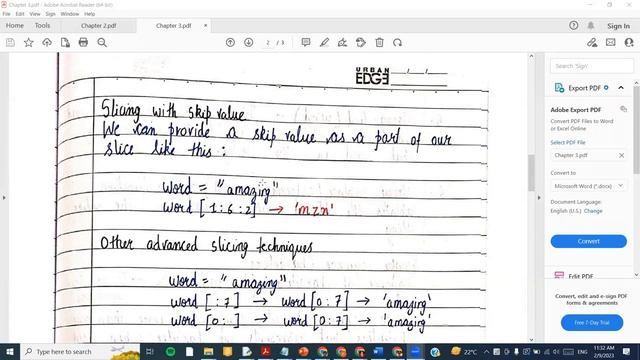 Chapter 3.pdf - Adobe Acrobat Reader (64-bit)
File Edit View Sign Window Help
Home Tools Chapter 2.pdf Chapter 3.pdf × Sign In
2 / 3
URBAN
EDGE
Slicing with skip value
We can provide a skip value as a part of our
slice like this:
word = "amazing"
word [1:6:2] → 'mzn'
Other advanced slicing techniques
word = "amazing"
word [:7] → word [0:7] → 'amazing'
word [0:] → word [0:7] → 'amazing'
Search 'Sign'
Export PDF
Adobe Export PDF
Convert PDF Files to Word
or Excel Online
Select PDF File
Chapter 3.pdf ×
Convert to
Microsoft Word (*.docx)
Document Language:
English (U.S.) Change
Convert
Edit PDF
Convert, edit and e-sign PDF
forms & agreements
Free 7-Day Trial
Type here to search
22°C
11:32 AM
2/9/2023